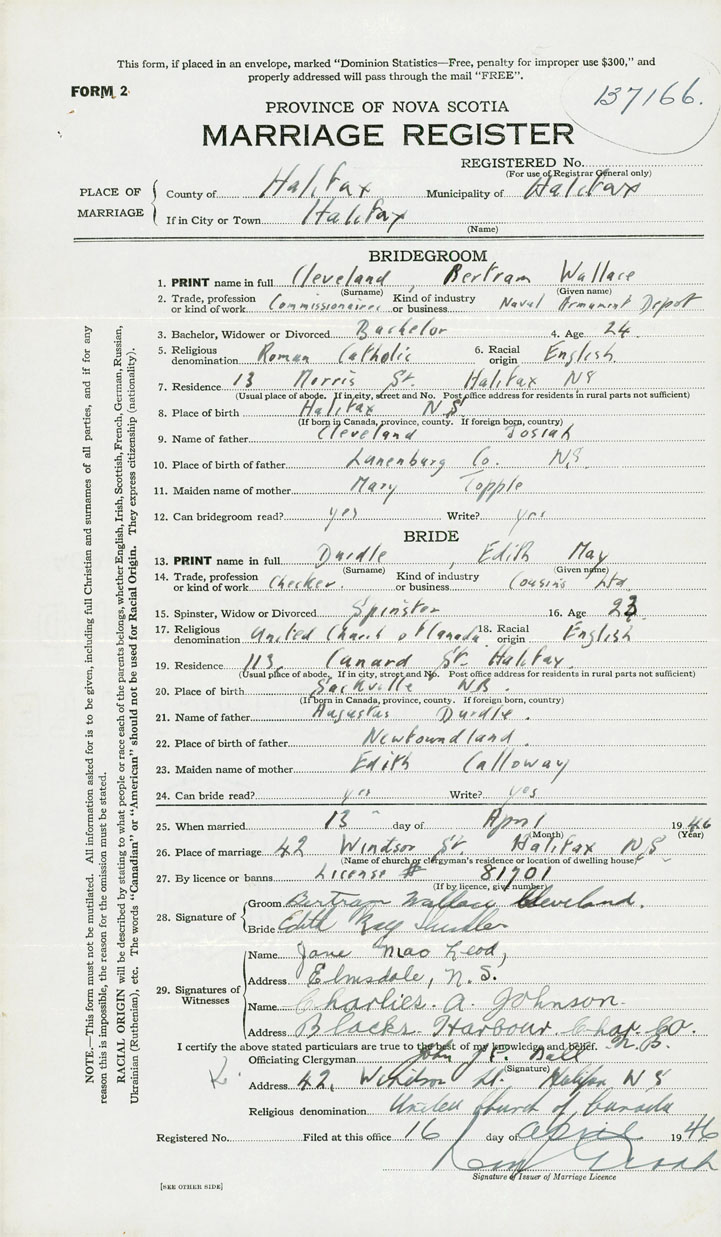 This form, if placed in an envelope, marked "Dominion Statistics—Free, penalty for improper use $300," and
properly addressed will pass through the mail "FREE".
FORM 2
137166.
PROVINCE OF NOVA SCOTIA
MARRIAGE REGISTER
REGISTERED No.
(For use of Registrar General only)
PLACE OF MARRIAGE
County of Halifax Municipality of Halifax
If in City or Town Halifax
(Name)
BRIDEGROOM
1. PRINT name in full Cleveland, Bertram Wallace
(Surname) (Given name)
2. Trade, profession or kind of work Commissionaires Kind of industry or business Naval Armament Depot
3. Bachelor, Widower or Divorced Bachelor 4. Age 24
5. Religious denomination Roman Catholic 6. Racial origin English
7. Residence 13 Morris St. Halifax NS
(Usual place of abode. If in city, street and No. Post office address for residents in rural parts not sufficient)
8. Place of birth Halifax NS
(If born in Canada, province, county. If foreign born, country)
9. Name of father Cleveland Josiah
10. Place of birth of father Lunenburg Co. NS.
11. Maiden name of mother Mary Topple
12. Can bridegroom read? yes Write? yes
BRIDE
13. PRINT name in full Durdle, Edith May
(Surname) (Given name)
14. Trade, profession or kind of work Checker. Kind of industry or business Cousin's Ltd
15. Spinster, Widow or Divorced Spinster 16. Age 23
17. Religious denomination United Church of Canada 18. Racial origin English
19. Residence 113 Canard St. Halifax.
(Usual place of abode. If in city, street and No. Post office address for residents in rural parts not sufficient)
20. Place of birth Sackville NB.
(If born in Canada, province, county. If foreign born, country)
21. Name of father Augustus Durdle.
22. Place of birth of father Newfoundland.
23. Maiden name of mother Edith Calloway
24. Can bride read? yes Write? yes
25. When married 13 day of April 1946
(Month) (Year)
26. Place of marriage 42 Windsor St Halifax NS
(Name of church or clergyman's residence or location of dwelling house)
27. By licence or banns License # 81701
(If by licence, give number)
28. Signature of
Groom Bertram Wallace Cleveland.
Bride Edith May
29. Signatures of Witnesses
Name Jane MacLeod,
Address Elmsdale, N.S.
Name Charlies. A. Johnson.
Address Blacks Harbour Char. Co. N.B.
I certify the above stated particulars are true to the best of my knowledge and belief.
Officiating Clergyman John
(Signature)
Address 42, Windsor St. Halifax N S
Religious denomination United Church of Canada
Registered No. Filed at this office 16 day of April 1946
Signature of Issuer of Marriage Licence
[SEE OTHER SIDE]
NOTE.—This form must not be mutilated. All information asked for is to be given, including full Christian and surnames of all parties, and if for any
reason this is impossible, the reason for the omission must be stated.
RACIAL ORIGIN will be described by stating to what people or race each of the parents belongs, whether English, Irish, Scottish, French, German, Russian,
Ukrainian (Ruthenian), etc. The words "Canadian" or "American" should not be used for Racial Origin. They express citizenship (nationality).